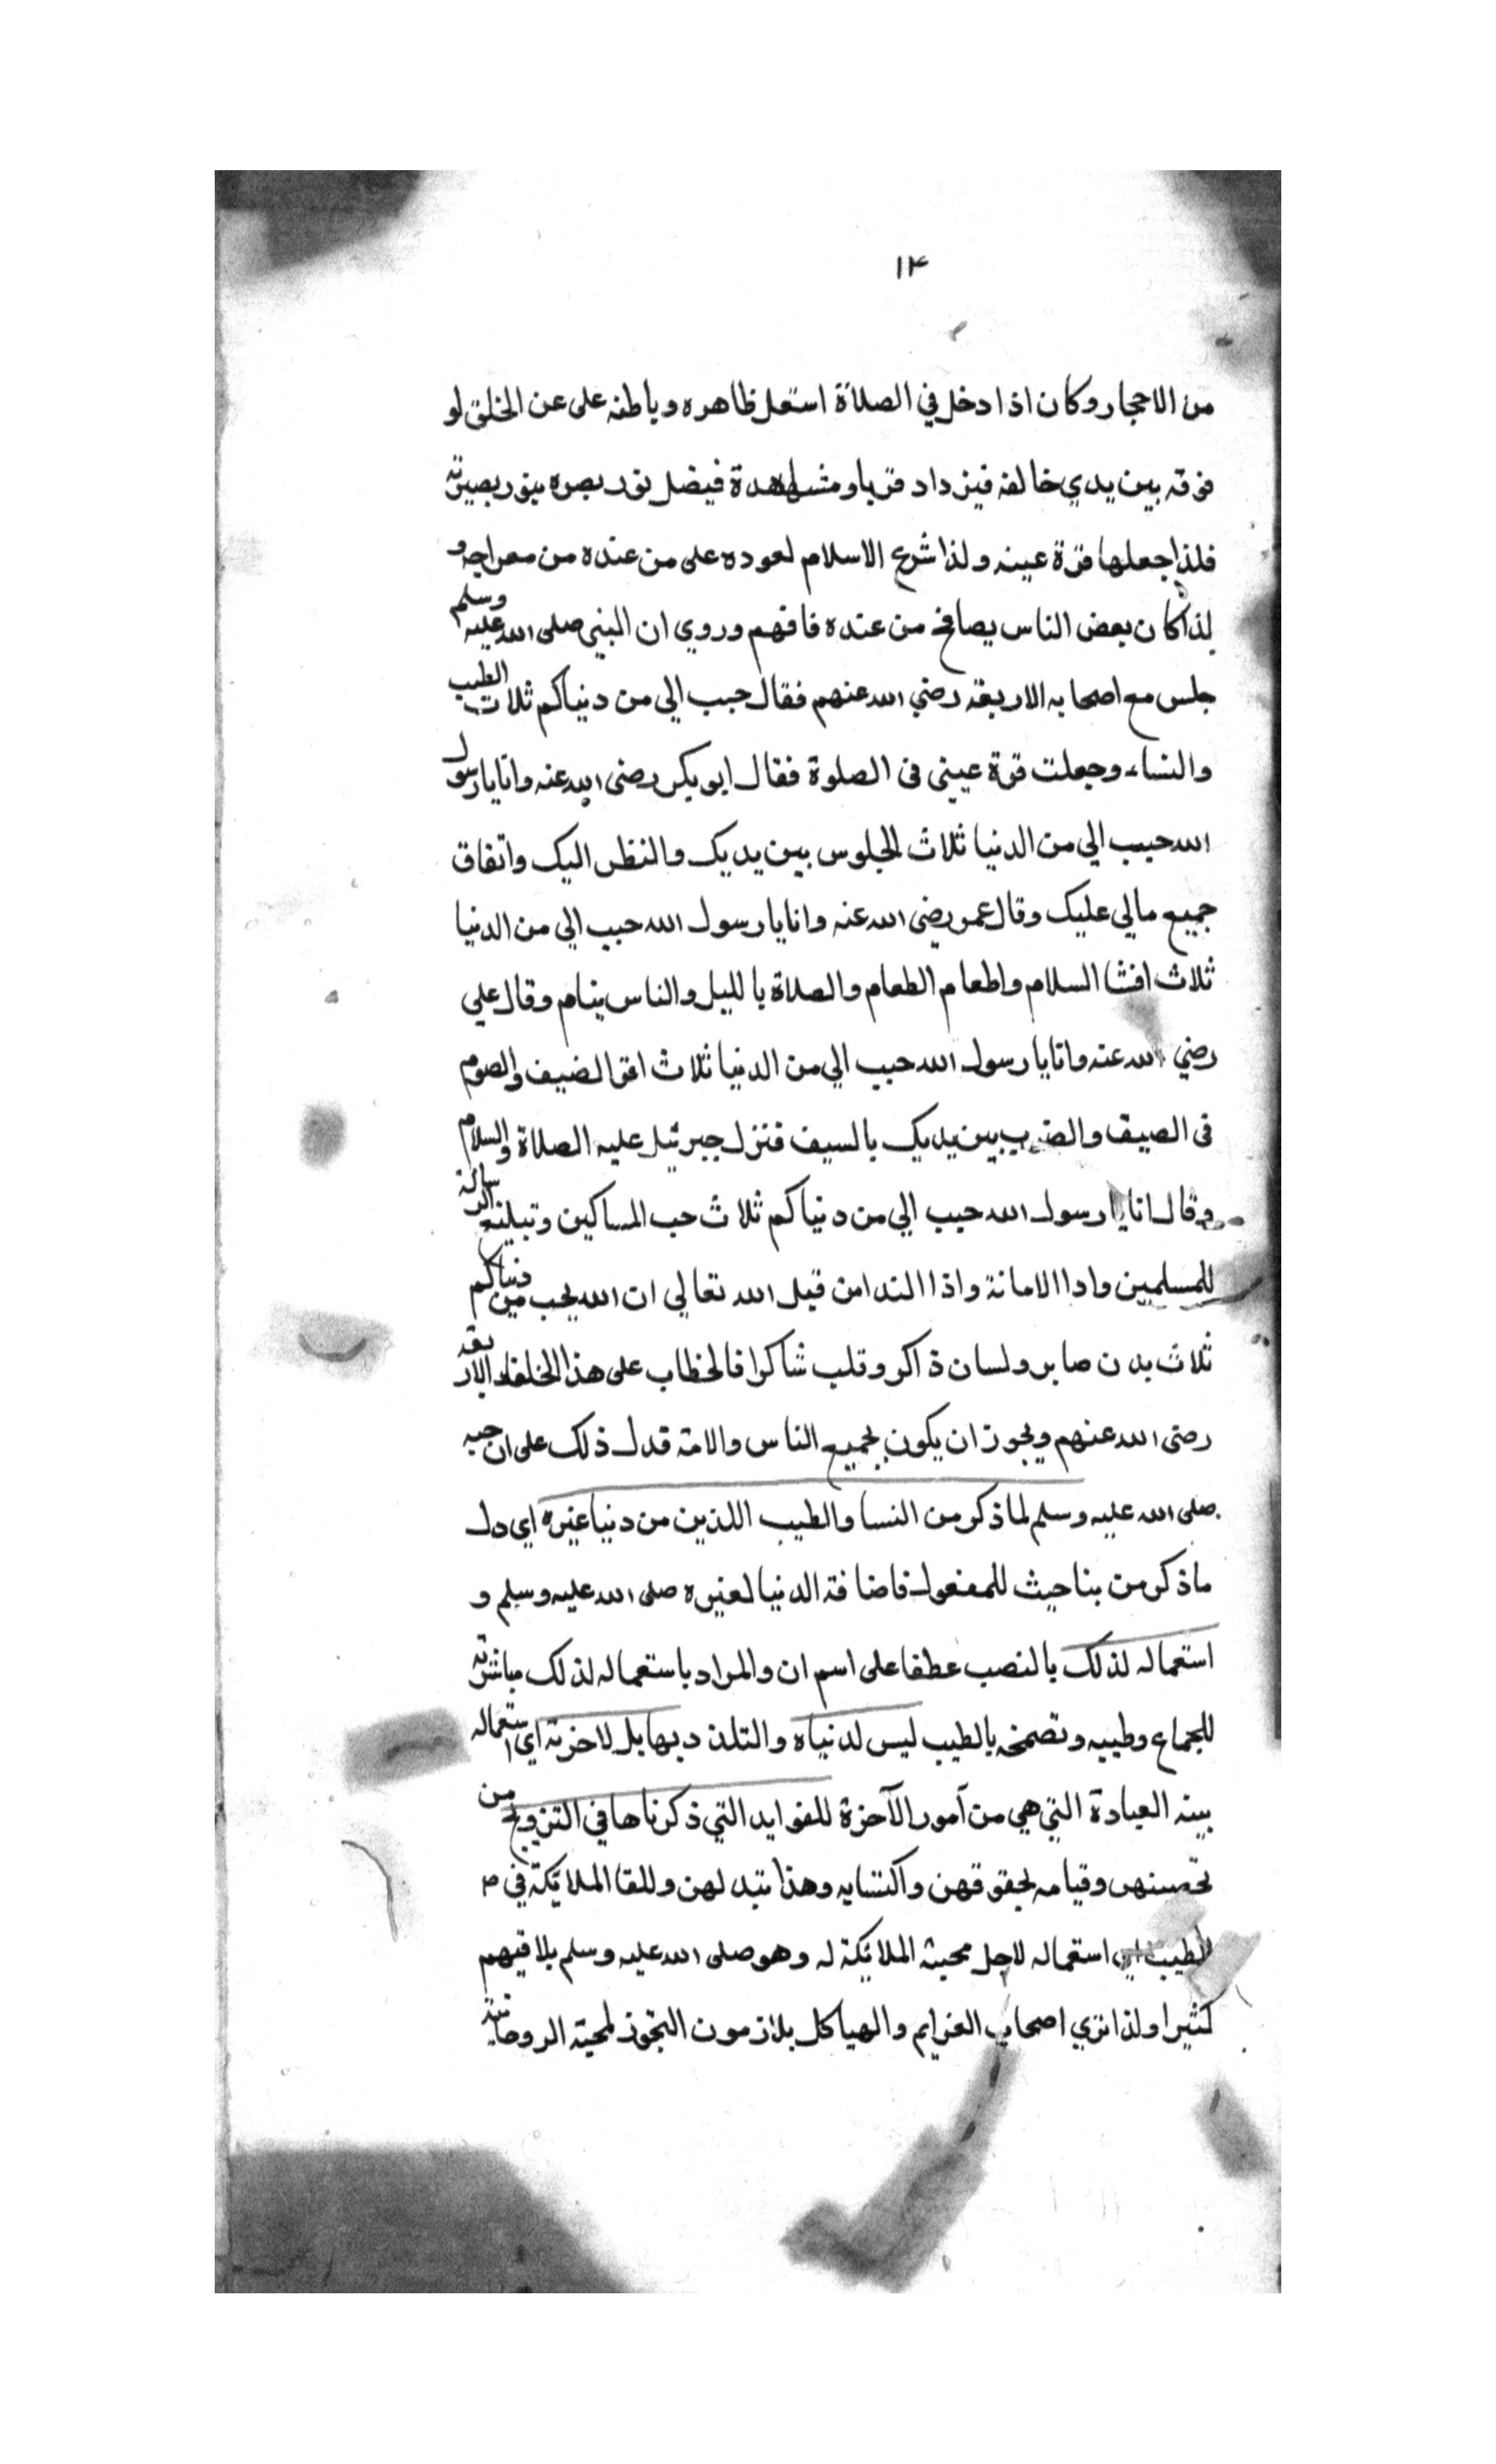 ١٣
من الاحجار وكان اذا دخل في الصلاة استعل ظاهره وباطنه على عن الخلق لو
فوقه بين يدي خالقه فيزداد قربا ومشاهدة فيضل نور بصره بنور بصيرته
فلذا جعلها قرة عينه ولذا شرع الاسلام لعوده على من عنده من معراجه و
لذا كان بعض الناس يصافح من عنده فافهم وروي ان النبي صلى الله عليه وسلم
جلس مع اصحابه الاربعة رضي الله عنهم فقال حبب الي من دنياكم ثلاث الطيب
والنساء وجعلت قرة عيني فى الصلوة فقال ابو بكر رضى الله عنه وانا يا رسول
الله حبب الي من الدنيا ثلاث الجلوس بين يديك والنظر اليك وانفاق
جميع مالي عليك وقال عمر رضي الله عنه وانا يا رسول الله حبب الي من الدنيا
ثلاث افشا السلام واطعام الطعام والصلاة بالليل والناس ينام وقال علي
رضي الله عنه وانا يا رسول الله حبب الي من الدنيا ثلاث اقرا الضيف والصوم
فى الصيف والضرب بين يديك بالسيف فنزل جبرئيل عليه الصلاة والسلام
وقال انا يا رسول الله حبب الي من دنياكم ثلاث حب المساكين وتبليغ الرسالة
للمسلمين وادا الامانة واذا الندا من قبل الله تعالي ان الله يحب من دنياكم
ثلاث بدن صابر ولسان ذاكر وقلب شاكرا فالخطاب على هذا للخلفاء الاربعة
رضى الله عنهم ويجوز ان يكون لجميع الناس والامة فدل ذلك على ان حبه
صلى الله عليه وسلم لما ذكر من النسا والطيب اللذين من دنيا غيره اي دل
ما ذكر من بنا حيث للمفعول فاضافة الدنيا لغيره صلى الله عليه وسلم و
استعماله لذلك بالنصب عطفا على اسم ان والمراد باستعماله لذلك مباشرته
للجماع وطيبه وتضمخه بالطيب ليس لدنياه والتلذذ بها بل لاخرته اي استعماله
بنية العبادة التي هي من أمور الآخرة للفوايد التي ذكرناها في التزويج من
تحصينهن وقيامه بحقوقهن واكتسابه وهذا للقا الملائكة في
الطيب اي استعماله لاجل محبة الملائكة له وهو صلى الله عليه وسلم يلاقيهم
كثيرا ولذا نري اصحاب العزايم والهياكل يلازمون البخور لمحبة الروحانية